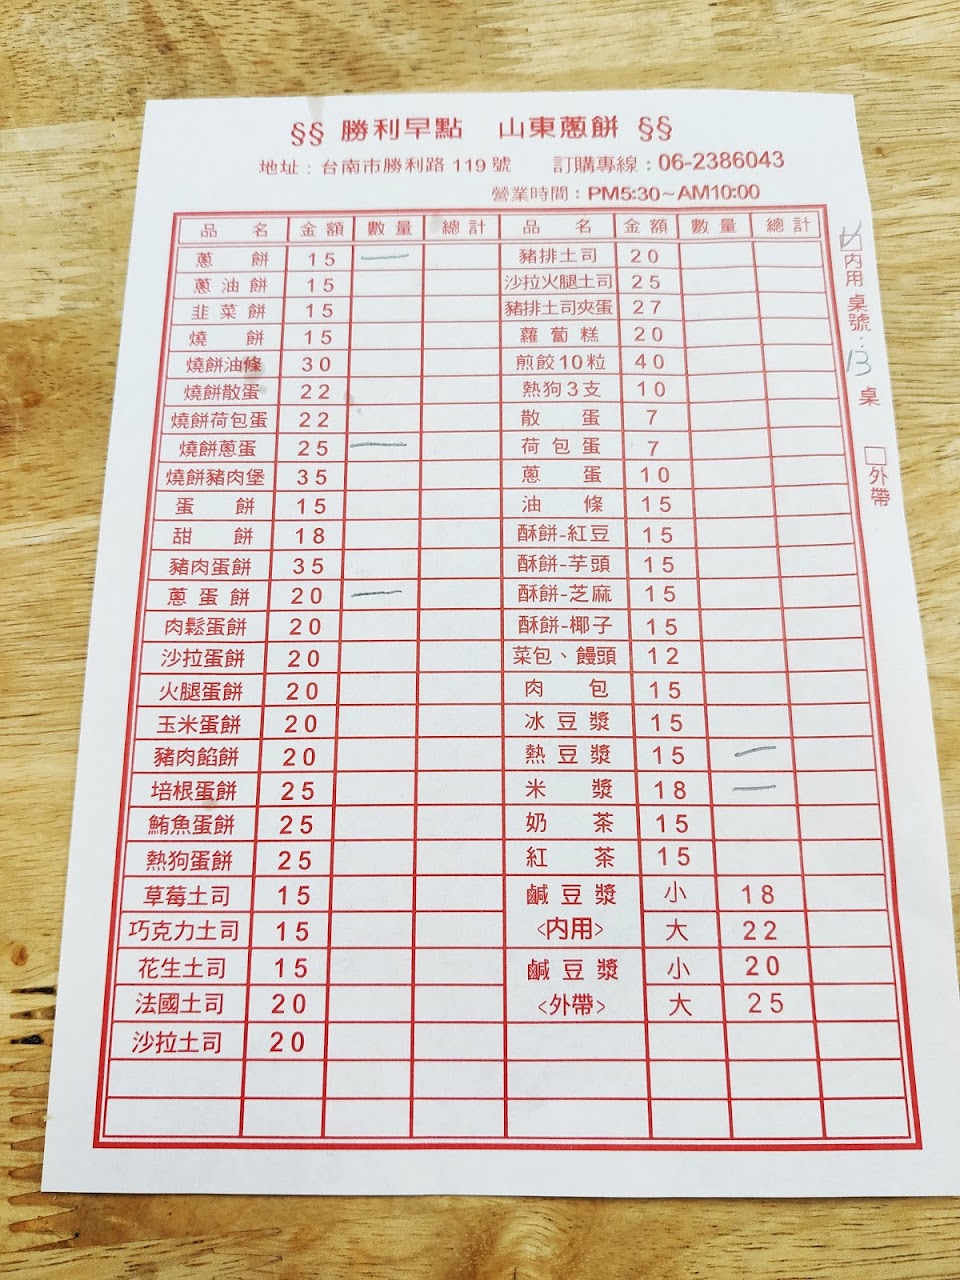 §§ 勝利早點 山東蔥餅 §§
地址：台南市勝利路 119 號 訂購專線：06-2386043
營業時間：PM5:30~AM10:00
品 名 金 額 數 量 總 計 品 名 金 額 數 量 總 計
蔥 餅 15 一 豬排土司 20
蔥 油 餅 15 沙拉火腿土司 25
韭 菜 餅 15 豬排土司夾蛋 27
燒 餅 15 蘿 蔔 糕 20
燒餅油條 30 煎餃10粒 40
燒餅散蛋 22 熱狗3支 10
燒餅荷包蛋 22 散 蛋 7
燒餅蔥蛋 25 一 荷 包 蛋 7
燒餅豬肉堡 35 蔥 蛋 10
蛋 餅 15 油 條 15
甜 餅 18 酥餅-紅豆 15
豬肉蛋餅 35 酥餅-芋頭 15
蔥 蛋 餅 20 一 酥餅-芝麻 15
肉鬆蛋餅 20 酥餅-椰子 15
沙拉蛋餅 20 菜包、饅頭 12
火腿蛋餅 20 肉 包 15
玉米蛋餅 20 冰 豆 漿 15
豬肉餡餅 20 熱 豆 漿 15 一
培根蛋餅 25 米 漿 18 一
鮪魚蛋餅 25 奶 茶 15
熱狗蛋餅 25 紅 茶 15
草莓土司 15 鹹 豆 漿 小 18
巧克力土司 15 <內用> 大 22
花生土司 15 鹹 豆 漿 小 20
法國土司 20 <外帶> 大 25
沙拉土司 20
☑內用 桌號：13 桌 □外帶